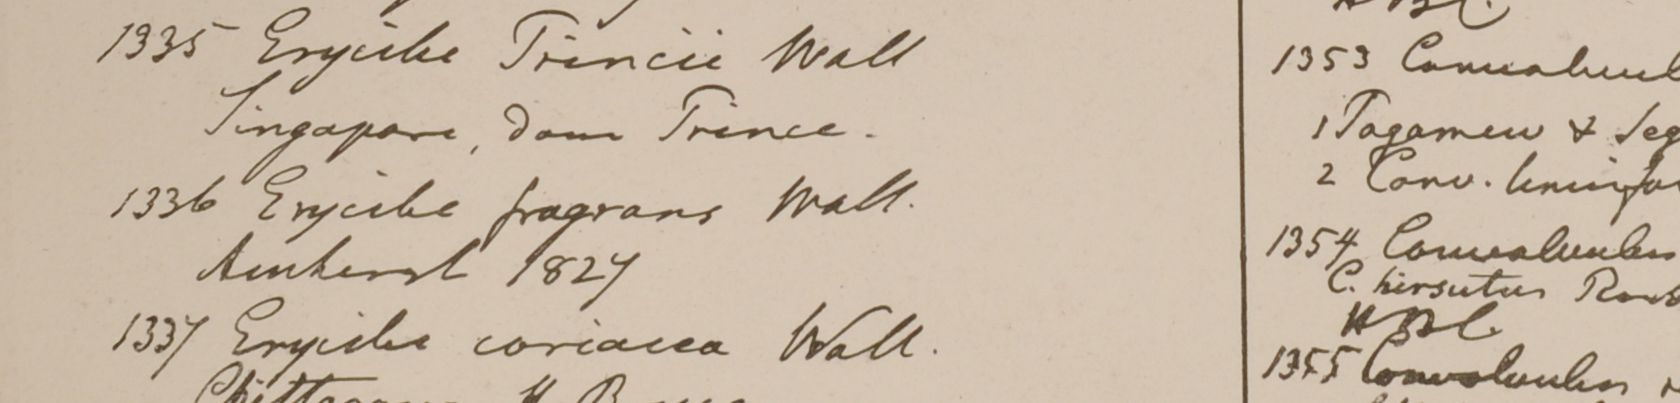 1335 Erycibe Princii Wall
Singapore, dom Prince.
1336 Erycibe fragrans Wall.
Amherst 1827
1337 Erycibe coriacea Wall.
Chittagong H. Bruce
HBC.
1353
1 Tagamew & Seg
2 Conv.
1354 Convolvulus
C. hirsutus Roxb
HBC.
1355 Convolvulus